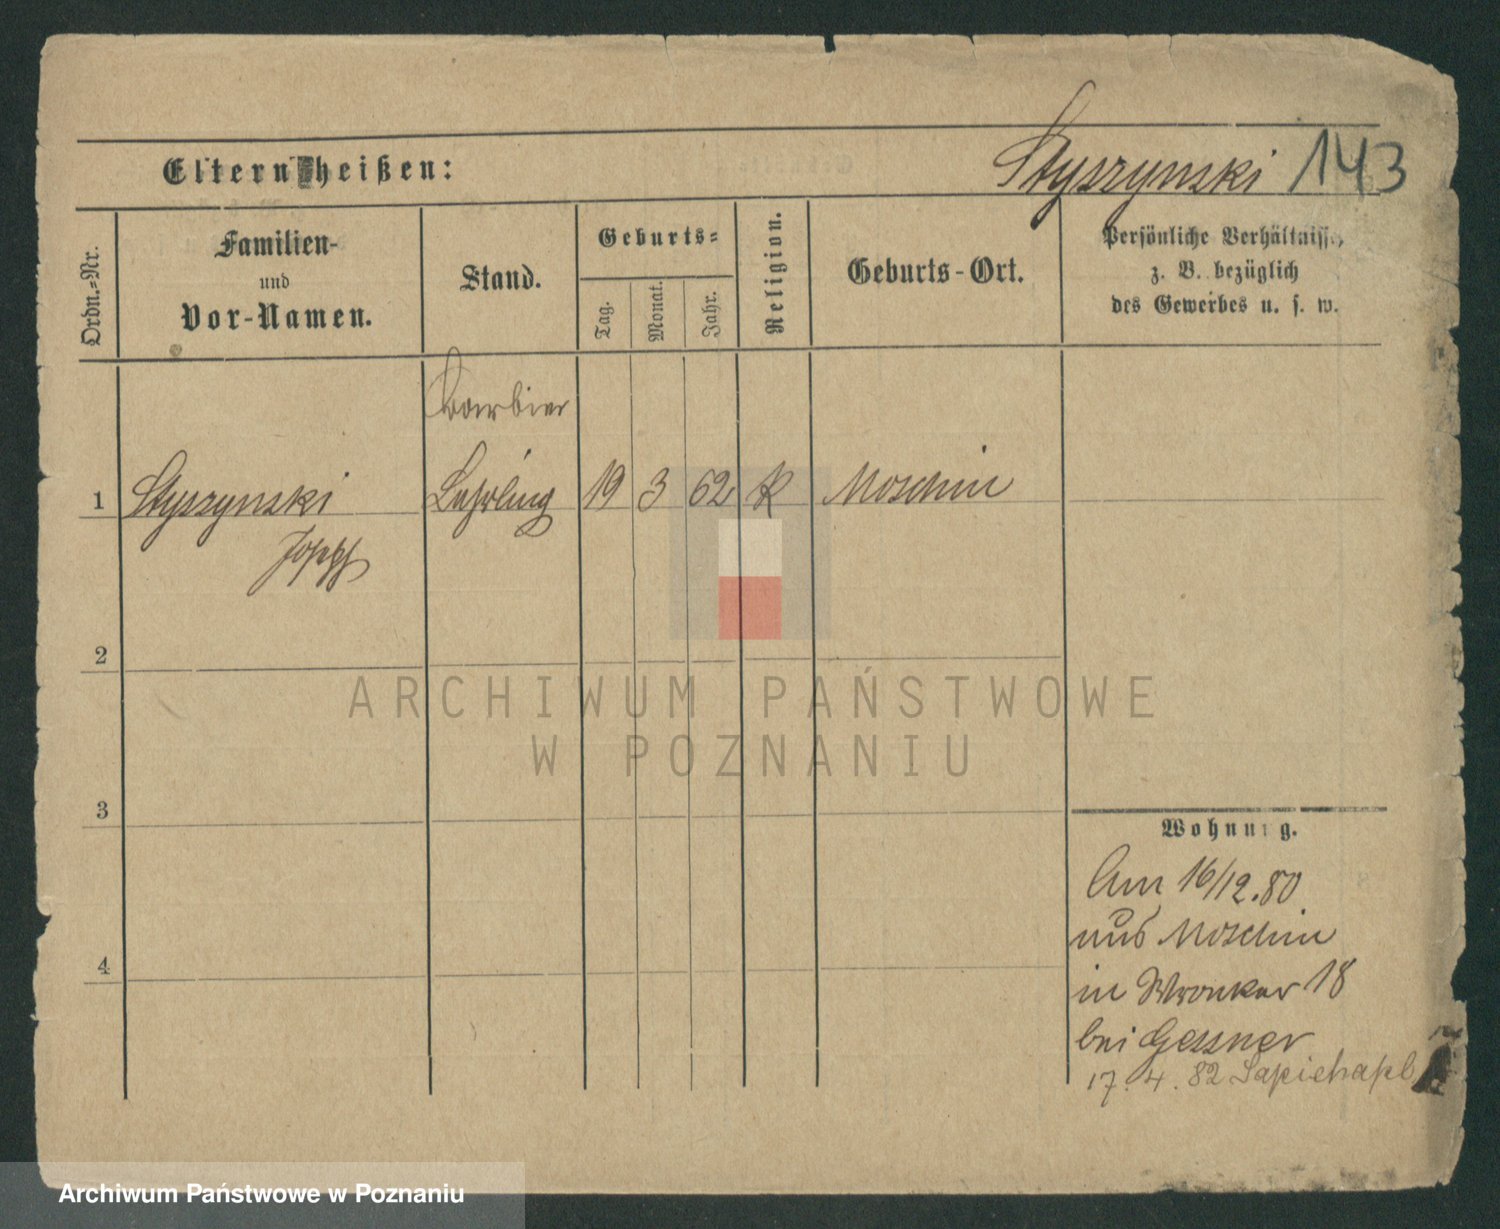 Eltern heißen:
Styszynski 143
Ordn.-Nr.
Familien-
und
Vor-Namen.
Stand.
Geburts-
Tag.
Monat.
Jahr.
Religion.
Geburts-Ort.
Persönliche Verhältnisse,
z. B. bezüglich
des Gewerbes u. s. w.
Barbier
1 Styszynski Lehrling 19 3 62 K Moschin
Joseph
2
ARCHIWUM PAŃSTWOWE
W POZNANIU
3
Wohnung.
Am 16/12.80
aus Moschin
4
in Wronker 18
bei Gessner
17. 4. 82 Sapiehapl
Archiwum Państwowe w Poznaniu